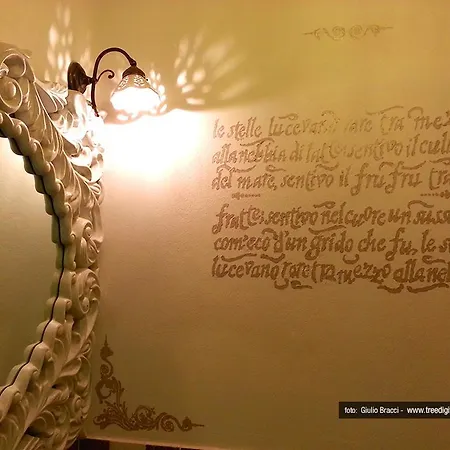 le stelle lucevano rare tra mez
alla nebbia di latte sentivo il cull
del mare, sentivo il fru fru tra
fratte; sentivo nel cuore un suss
com'eco d'un grido che fu, le s
lucevano rare tra mezzo alla neb
foto: Giulio Bracci - www.treedigi